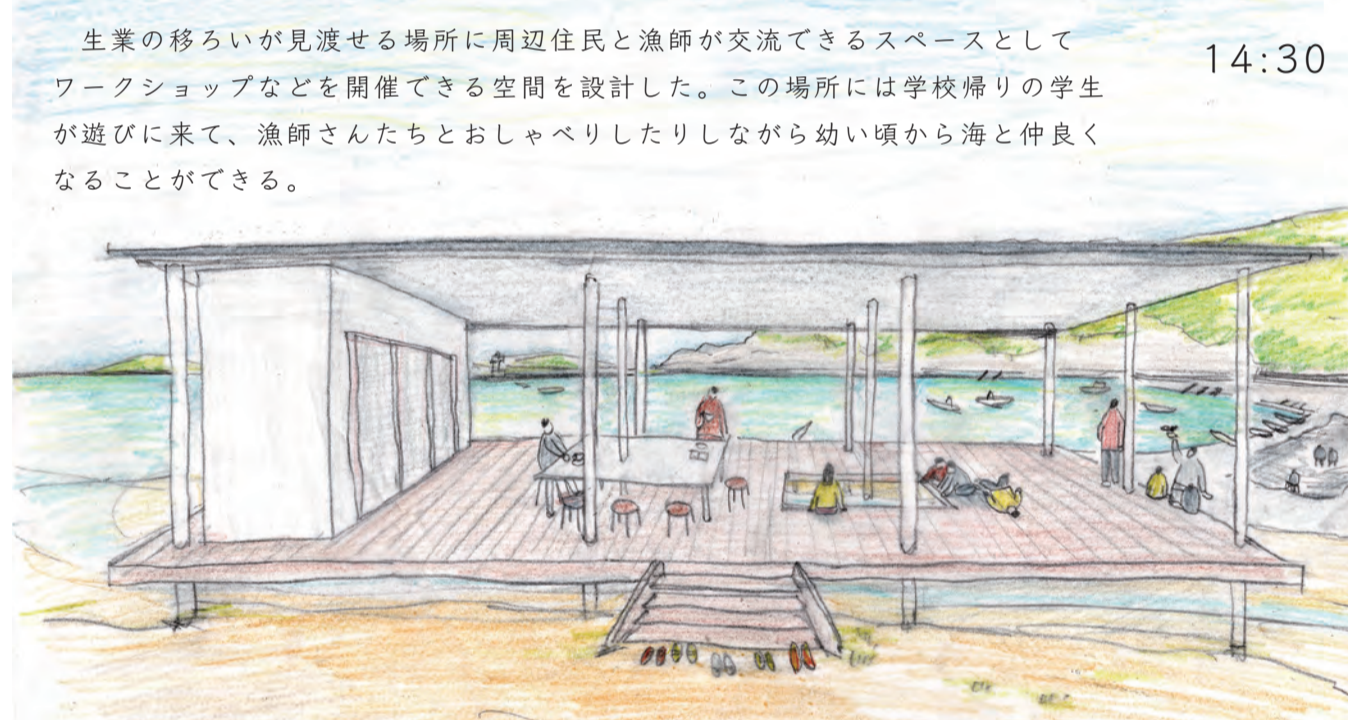 生業の移ろいが見渡せる場所に周辺住民と漁師が交流できるスペースとして
14:30
ワークショップなどを開催できる空間を設計した。この場所には学校帰りの学生
が遊びに来て、漁師さんたちとおしゃべりしたりしながら幼い頃から海と仲良く
なることができる。